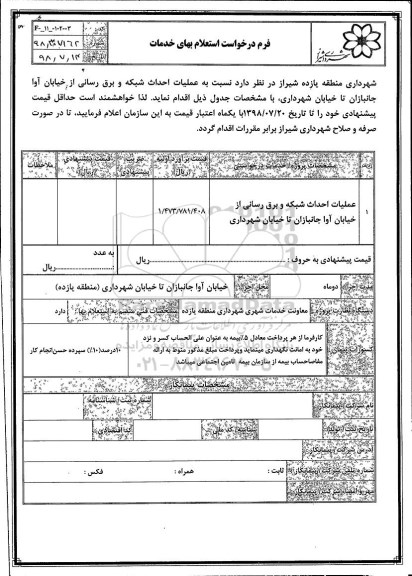 ۴۰_۱۱_۰۱-۲۰۰۳
۹۸/۵۷۱۶۲
۹۸/۷/۱۴
فرم درخواست استعلام بهای خدمات
شهرداری شیراز
شهرداری منطقه یازده شیراز در نظر دارد نسبت به عملیات احداث شبکه و برق رسانی از خیابان آوا
جانبازان تا خیابان شهرداری، با مشخصات جدول ذیل اقدام نماید. لذا خواهشمند است حداقل قیمت
پیشنهادی خود را تا تاریخ ۱۳۹۸/۰۷/۲۰با یکماه اعتبار قیمت به این سازمان اعلام فرمایید، تا در صورت
صرفه و صلاح شهرداری شیراز برابر مقررات اقدام گردد.
ردیف مشخصات پروژه قیمت برآورد اولیه (ریال) ضریب پیشنهادی قیمت پیشنهادی (ریال) ملاحظات
۱ عملیات احداث شبکه و برق رسانی از خیابان آوا جانبازان تا خیابان شهرداری ۱/۴۷۳/۷۸۱/۴۰۸
قیمت پیشنهادی به حروف : ریال به عدد ریال
مدت اجرا: دوماه محل اجرا: خیابان آوا جانبازان تا خیابان شهرداری (منطقه یازده)
دستگاه نظارت پروژه: معاونت خدمات شهری شهرداری منطقه یازده مشخصات فنی منضم به استعلام بها: دارد
کسورات قانونی: کارفرما از هر پرداخت معادل ۵٪بیمه به عنوان علی الحساب کسر و نزد
خود به امانت نگهداری مینماید وپرداخت مبلغ مذکور منوط به ارائه
مفاصاحساب بیمه از سازمان بیمه تامین اجتماعی میباشد
۱۰درصد(۱۰٪) سپرده حسن‌انجام کار
مشخصات پیمانکار
نام شرکت (پیمانکار): شماره ثبت/ شناسنامه:
تاریخ ثبت / تولد: شناسه / کد ملی: کد اقتصادی:
آدرس شرکت (پیمانکار):
شماره تلفن شرکت (پیمانکار): ثابت : همراه : فکس :
مهر و امضاء شرکت (پیمانکار):